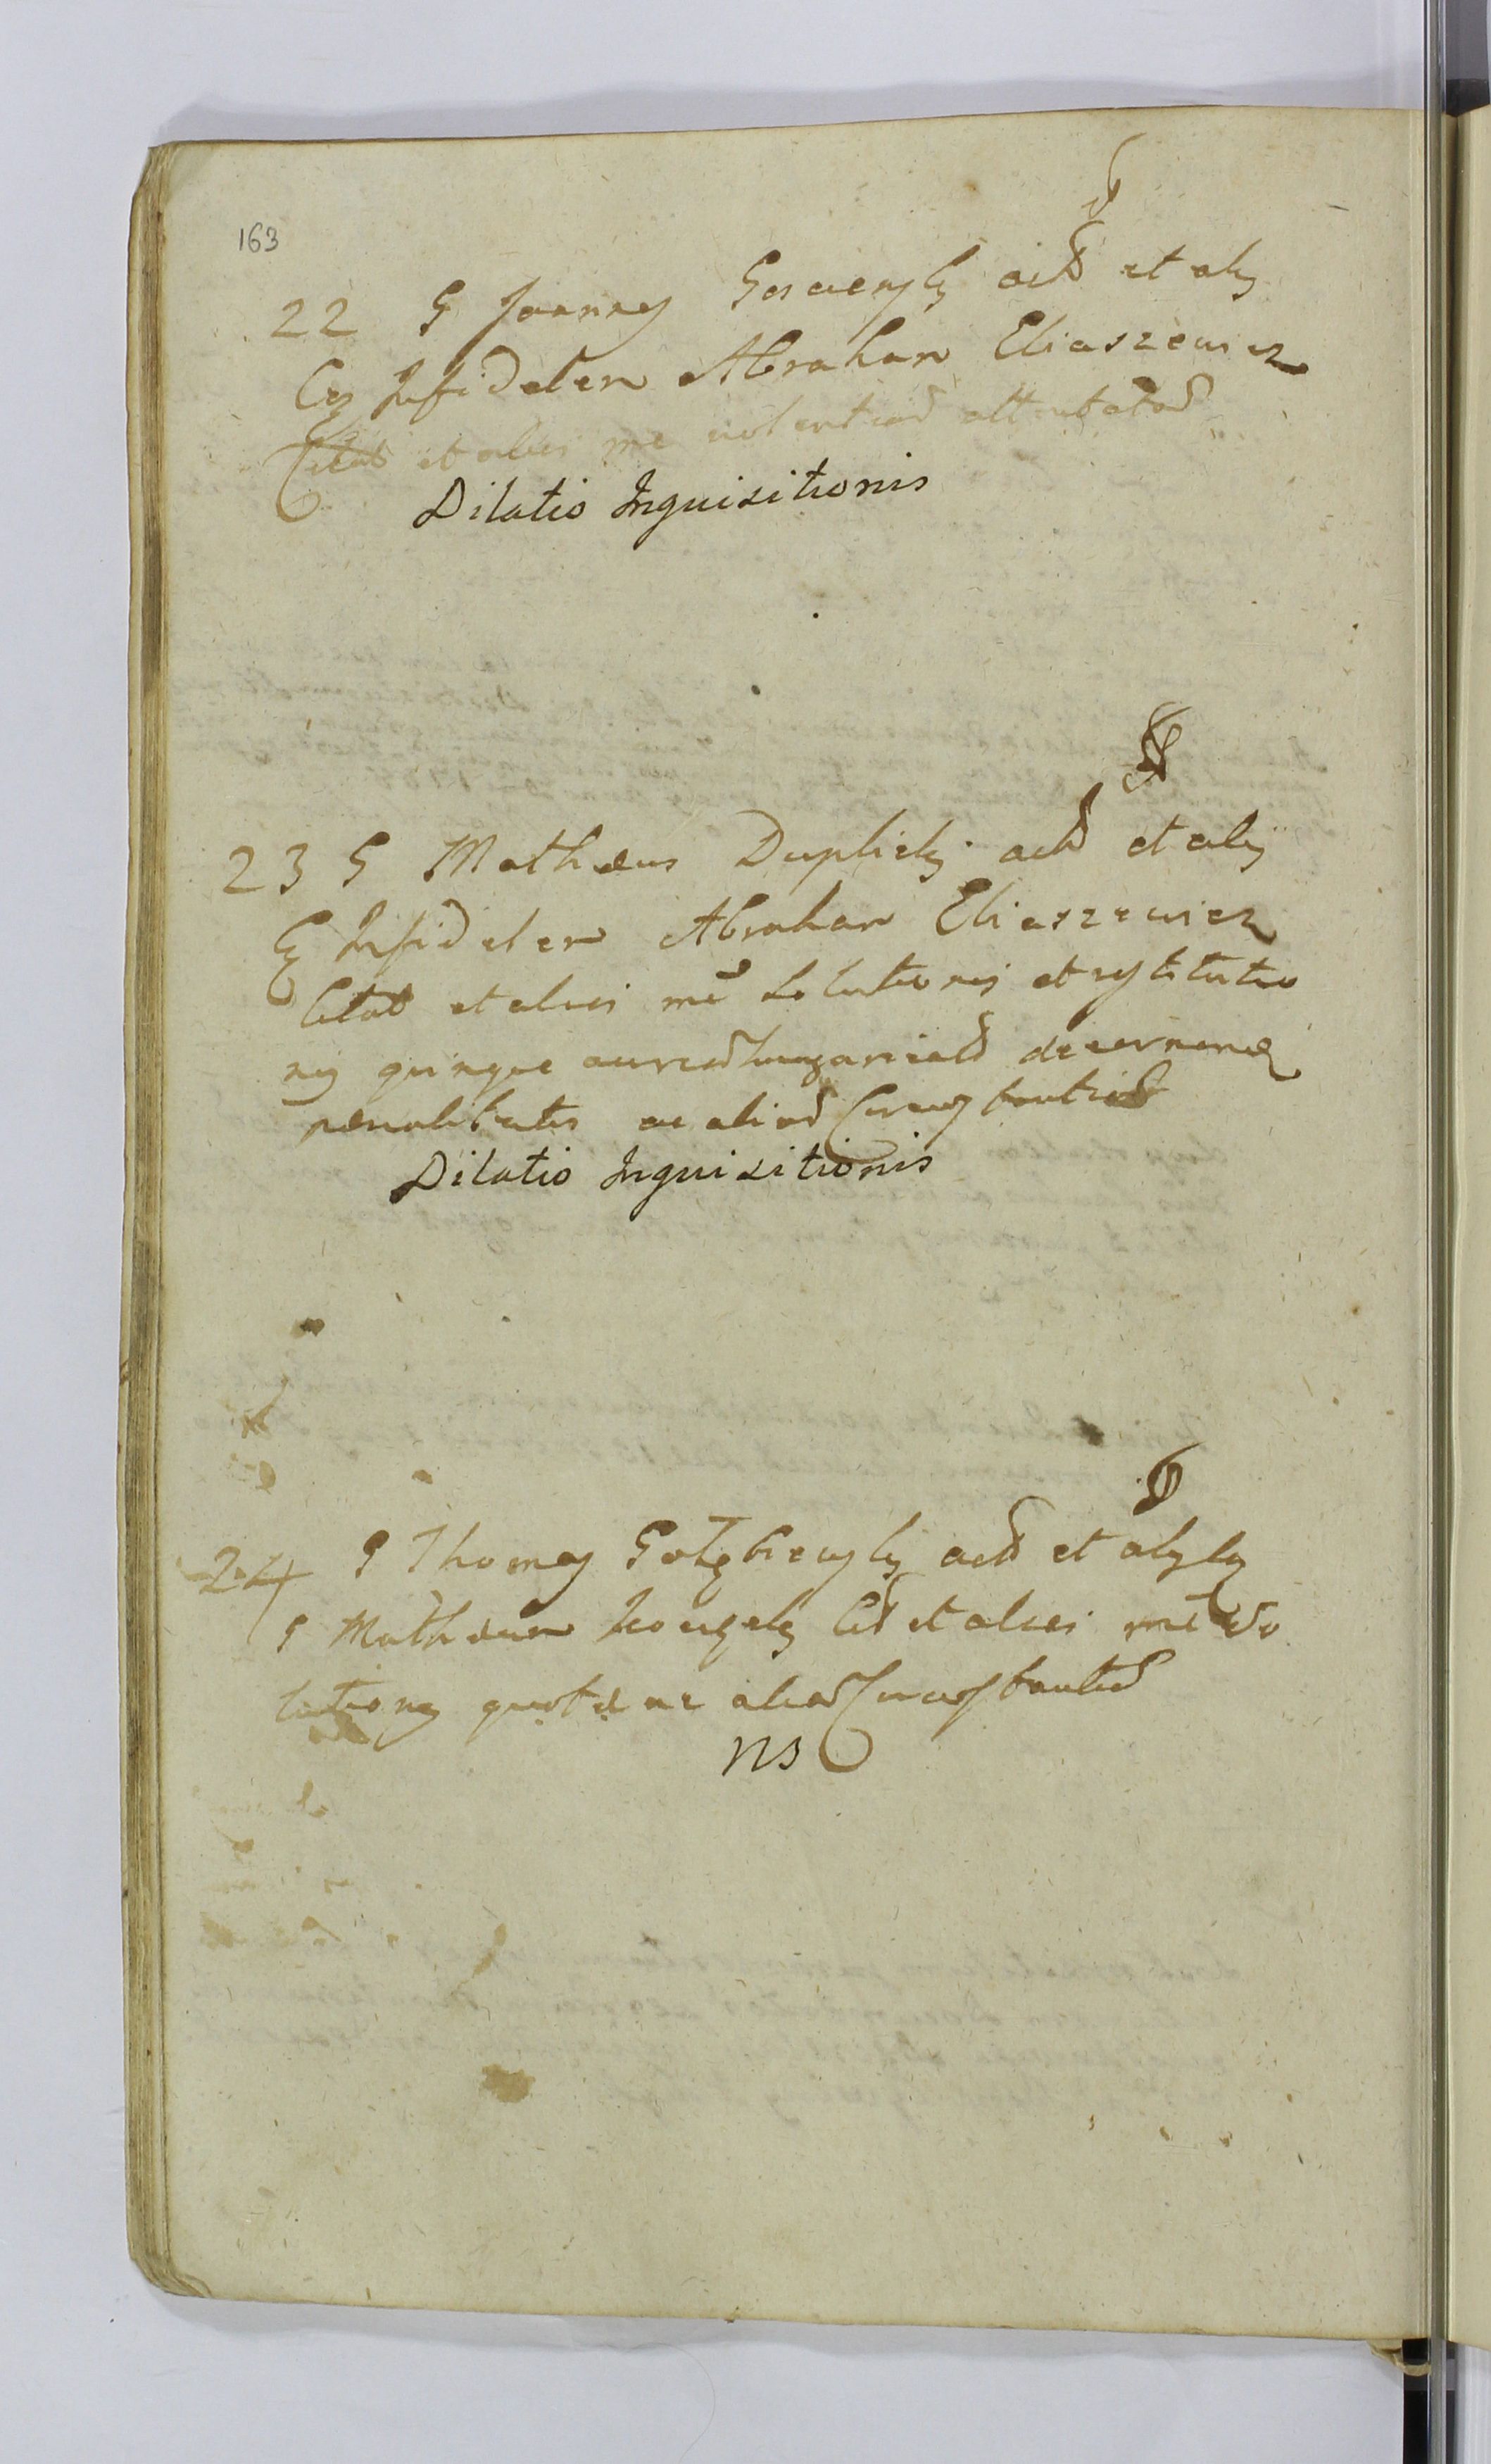 163
22 G Joannes actor et alij
Cg Infidelem Abraham Eliaszewicz
Citat et alios me violentiar attentatar
Dilatio Inquisitionis
23 G Mathæus Duplicki actor et alij
Cg Infidelem Abraham Eliaszewicz
Citat et alios me Solutionis et restitutio
nis quinque aureor hungarical
penalitatis ac aliar Circumstantiar
Dilatio Inquisitionis
24 G Thomas Gołębiewski actor et alij Cg
G Mathæum Cit et alios me So
lutionis quotæ ac aliar Circumstantiar
ns